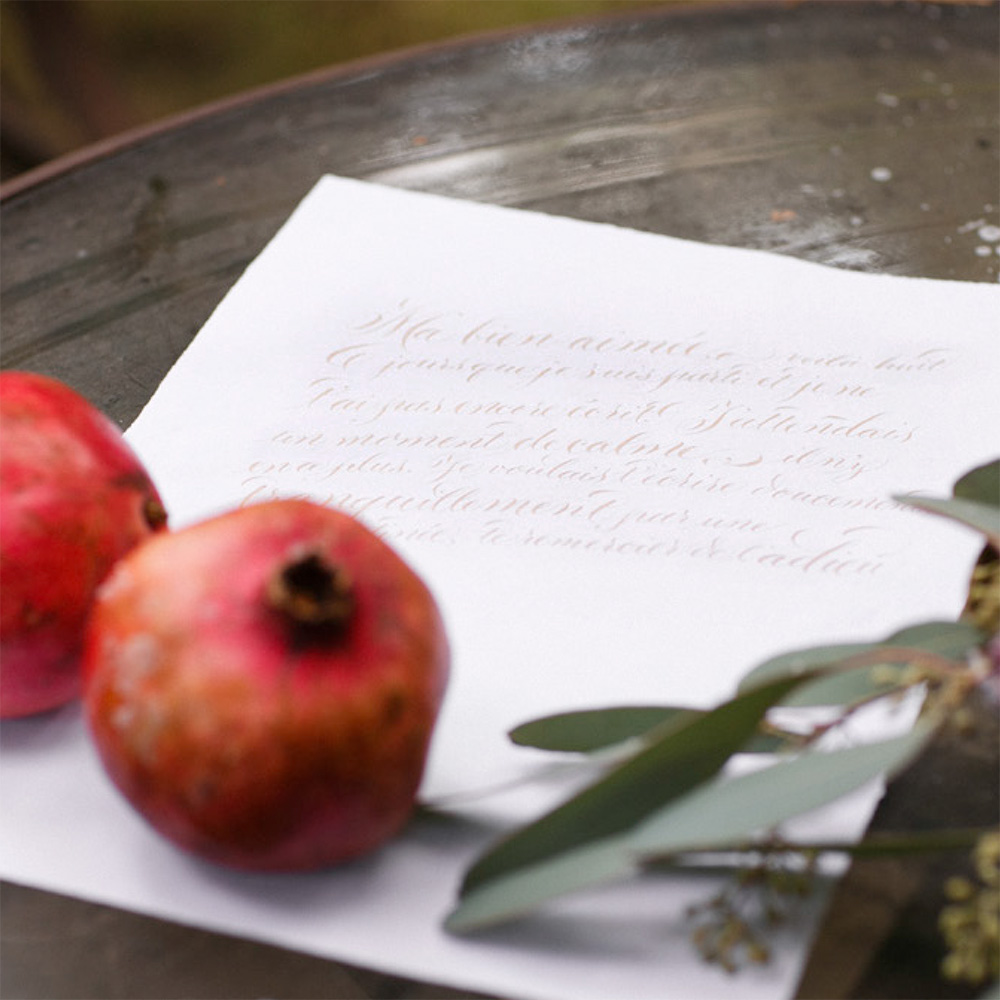 Ma bien aimée, voilà huit
jours que je suis parti et je ne
t'ai pas encore écrit. J'attendais
un moment de calme, il n'y
en a plus. Je voulais t'écrire doucement
tranquillement par une
te remercier de l'adieu